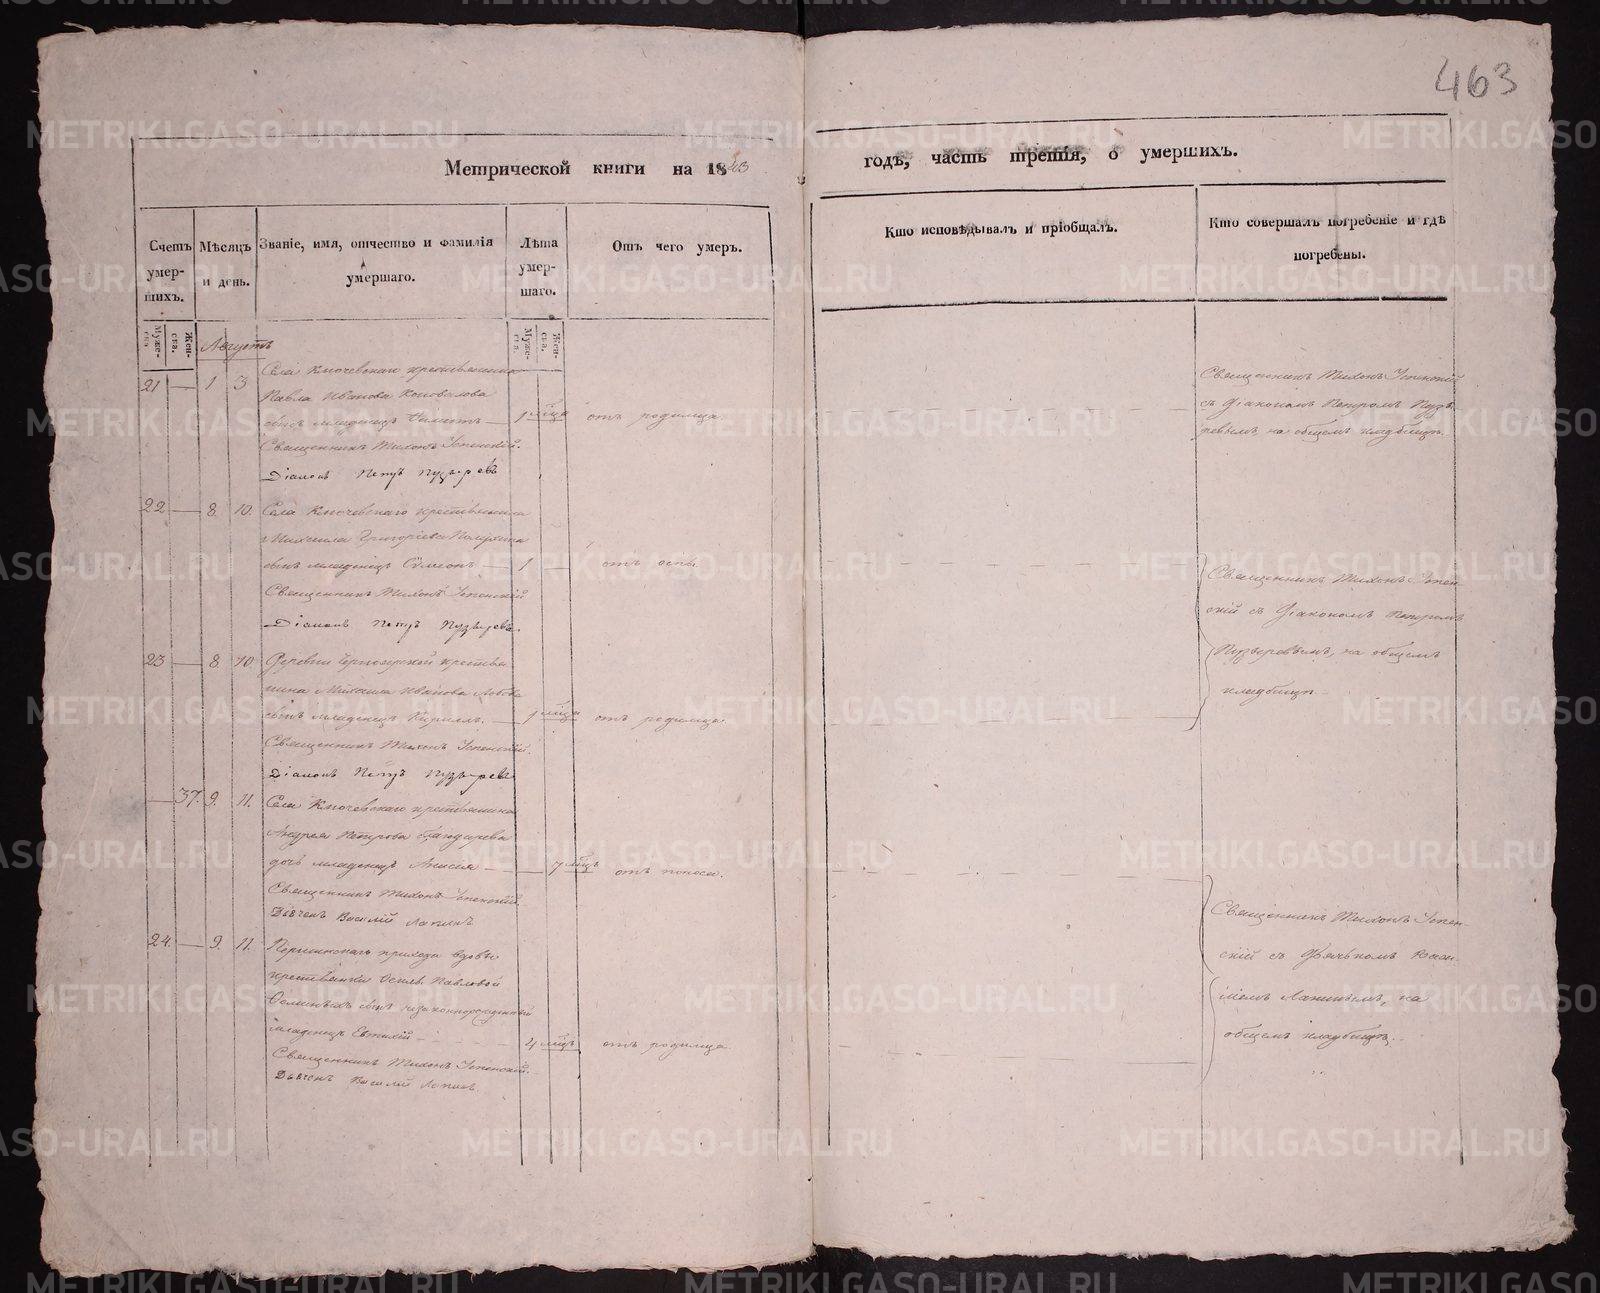 463
Метрической книги на 1843
годъ, часть третія, о умершихъ.
Счетъ умер-
шихъ.
Мѣсяцъ
и день.
Званіе, имя, отчество и фамилія
умершаго.
Лѣта
умер-
шаго.
Отъ чего умеръ.
Кто исповѣдывалъ и пріобщалъ.
Кто совершалъ погребеніе и гдѣ
погребены.
Муже-
ска
Жен-
ска.
Муже-
ска.
Жен-
ска.
Августъ
21 — 1 3
Села Ключевскаго крестьянина
Павла Иванова Коновалова
сынъ младенецъ
1 мѣца
отъ родимца.
Священникъ Тихонъ Успенскій.
Діаконъ Петръ Пузыревъ
Священникъ Тихонъ Успенскій
съ Діакономъ Петромъ Пузы-
ревымъ, на общемъ кладбищѣ.
22 — 8. 10.
Села Ключевскаго крестьянина
Михаила Григоріева
сынъ младенецъ Сѵмеонъ — 1 —
отъ оспы.
Священникъ Тихонъ Успенскій
Діаконъ Петръ Пузыревъ.
23 — 8 10
Деревни крестья-
нина Михаила Иванова
сынъ младенецъ Кириллъ. — 1 мѣца
отъ родимца.
Священникъ Тихонъ Успенскій.
Діаконъ Петръ Пузыревъ
Священникъ Тихонъ Успен-
скій съ Діакономъ Петромъ
Пузыревымъ, на общемъ
кладбищѣ.
— 37. 9. 11.
Села Ключевскаго крестьянина
Андрея Петрова
дочь младенецъ Анисія — 7 мѣцъ
отъ поноса.
Священникъ Тихонъ Успенскій.
Дьячекъ Василій Лапинъ
24. — 9. 11.
прихода вдовы
крестьянки Павловой
сынъ незаконнорожденный
младенецъ Евтихій — 4 мѣцъ
отъ родимца
Священникъ Тихонъ Успенскій.
Дьячекъ Василій Лапинъ.
Священникъ Тихонъ Успен-
скій съ Дьячкомъ Васи-
ліемъ Лапинымъ, на
общемъ кладбищѣ.
METRIKI.GASO-URAL.RU